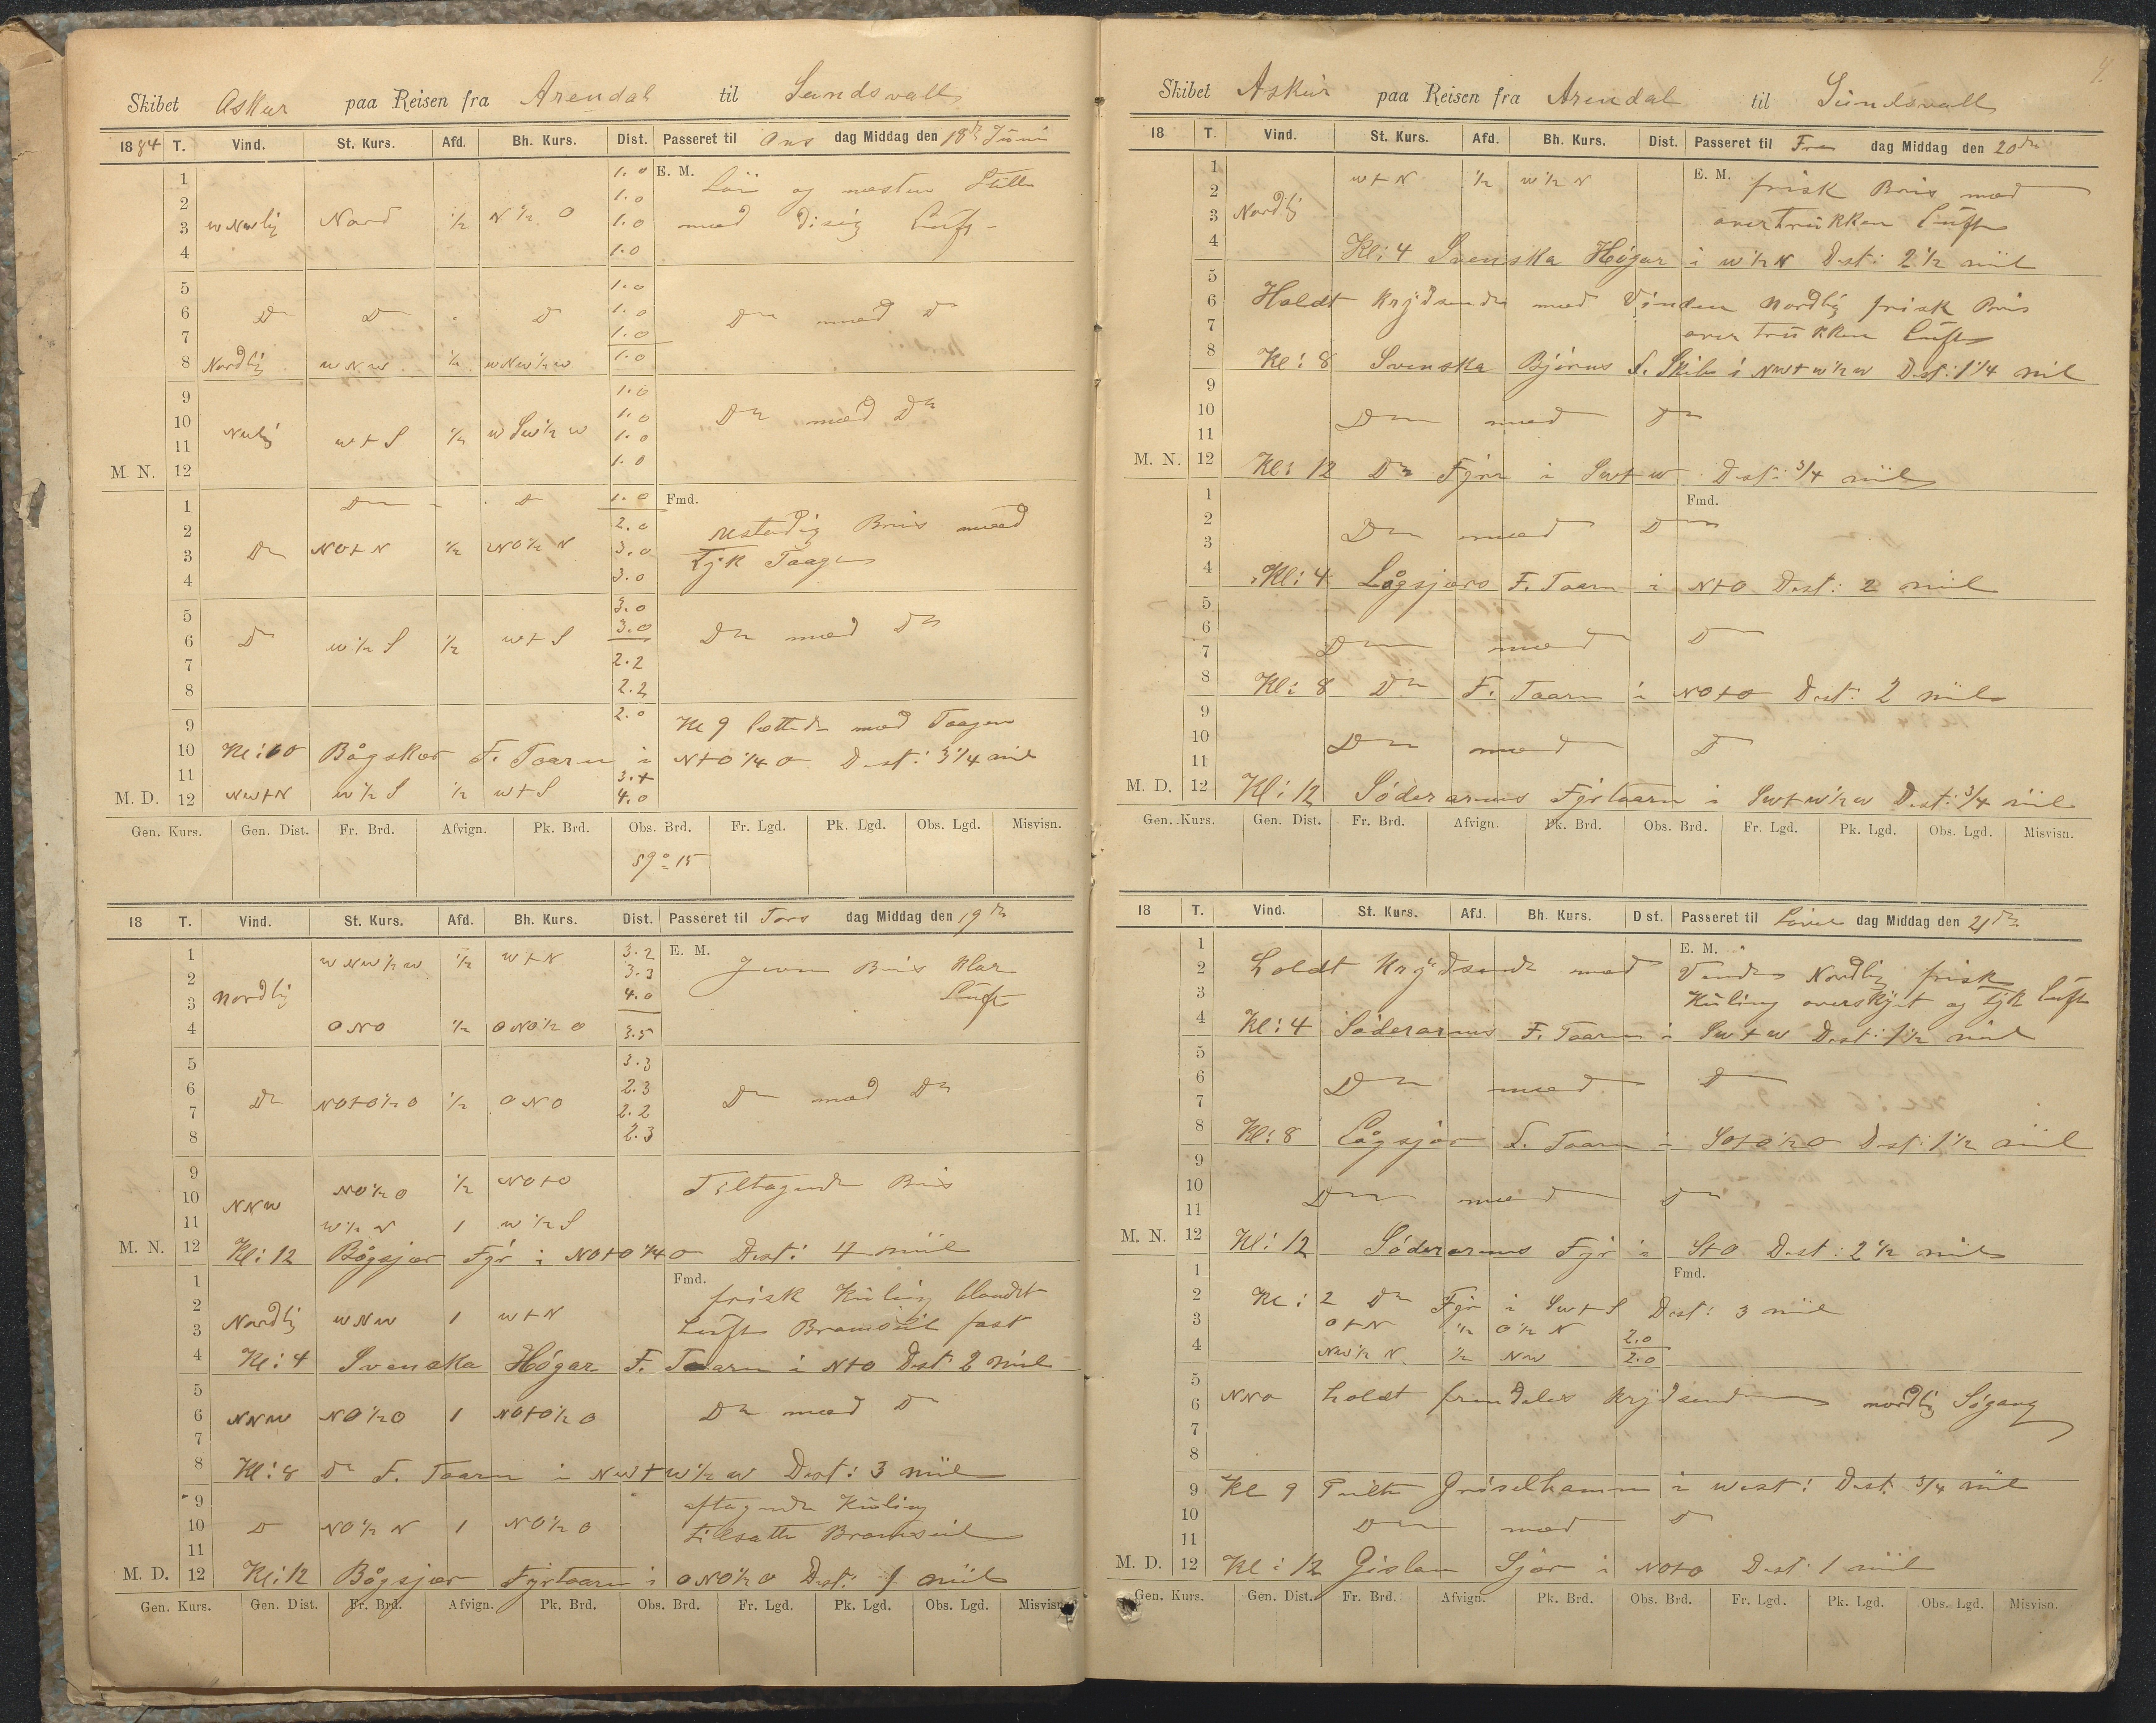 Skibet Askur paa Reisen fra Arendal til Sundsvall
1884 T. Vind. St. Kurs. Afd. Bh. Kurs. Dist. Passeret til Ons dag Middag den 18de Juni
1 1.0 E. M. Lör og næsten Stille
2 1.0
3 WNWlig Nord 1/2 N 1/2 O 1.0 med disig Luft
4 1.0
5 1.0
6 Do Do Do 1.0 Do med Do
7 1.0
8 Nordlig WNW 1/2 WNW 1/2 W 1.0
9 1.0
10 1.0 Do med Do
11 NWlig W t S 1/2 WSW 1/2 W 1.0
M. N. 12 1.0
1 Do Do 1.0 Fmd.
2 2.0 Ustadig Bris med
3 Do NO t N 1/2 NO 1/2 N 3.0 tyk Taage
4 3.0
5 3.0
6 Do W 1/2 S 1/2 W t S 3.0 Do med Do
7 2.2
8 2.2
9 2.0 Kl 9 lettede med Taagen
10 Kl: 10 Bågskær F. Taarn i N t O 1/4 O Dist: 3 1/4 mil
11 3.4
M. D. 12 NW t N W 1/2 S 1/2 W t S 4.0
Gen. Kurs. Gen. Dist. Fr. Brd. Afvign. Pk. Brd. Obs. Brd. Fr. Lgd. Pk. Lgd. Obs. Lgd. Misvisn.
59° 15
18 T. Vind. St. Kurs. Afd. Bh. Kurs. Dist. Passeret til Tors dag Middag den 19de
1 WNW 1/2 W 1/2 W t N 3.2 E. M. Jevn Bris klar
2 3.3
3 Nordlig 4.0 Luft
4 ONO 1/2 ONO 1/2 O 3.5
5 3.3
6 Do NO t O 1/2 O 1/2 ONO 2.3 Do med Do
7 2.2
8 2.3
9
10 NNW NO 1/2 O 1/2 NO t O Tiltagende Bris
11 W 1/2 N 1 W 1/2 S
M. N. 12 Kl: 12 Bågsjær Fÿr i NO t O 1/4 O Dist: 4 miil
1 Fmd. frisk Kuling blandet
2 Nordlig WNW 1 W t N
3 Luft Bramseil fast
4 Kl: 4 Svenska Högar F. Taarn i N t O Dist 2 miil
5
6 NNW NO 1/2 O 1 NO t O 1/2 O Do med Do
7
8 Kl: 8 Do F. Taarn i NW t W 1/2 W Dist: 3 miil
9 aftagende Kuling
10 Do NO 1/2 N 1 NO 1/2 O tilsatte Bramseil
11
M. D. 12 Kl: 12 Bågsjær Fyrtaarn i ONO 1/2 O Dist: 1 miil
Gen. Kurs. Gen. Dist. Fr. Brd. Afvign. Pk. Brd. Obs. Brd. Fr. Lgd. Pk. Lgd. Obs. Lgd. Misvisn.
Skibet Askur paa Reisen fra Arendal til Sundsvall
18 T. Vind. St. Kurs. Afd. Bh. Kurs. Dist. Passeret til Fre dag Middag den 20de
1 W t N 1/2 W 1/2 N E. M. frisk Bris med
2
3 Nordlig overtrukken Luft
4 Kl: 4 Svenska Högar i W 1/2 N Dist: 2 1/2 miil
5
6 Holdt Krydsende med Vinden Nordlig frisk Bris
7 overtrukken Luft
8 Kl: 8 Svenska Björns F. Skib i NW t W 1/2 W Dist: 1 1/4 mil
9
10 Do med Do
11
M. N. 12 Kl: 12 Do Fyr i SW t W Dist: 3/4 miil
1 Fmd.
2 Do med Do
3
4 Kl: 4 Lågsjærs F. Taarn i N t O Dist: 2 miil
5
6 Do med Do
7
8 Kl: 8 Do F. Taarn i NO t O Dist: 2 miil
9
10 Do med Do
11
M. D. 12 Kl: 12 Söderarms Fyrtaarn i SW t W 1/2 W Dist: 3/4 miil
Gen. Kurs. Gen. Dist. Fr. Brd. Afvign. Pk. Brd. Obs. Brd. Fr. Lgd. Pk. Lgd. Obs. Lgd. Misvisn.
18 T. Vind. St. Kurs. Afd. Bh. Kurs. Dist. Passeret til Löver dag Middag den 21de
1 E. M.
2 holdt Krydsende med Vinden Nordlig frisk
3 Kuling overskyet og tyk Luft
4 Kl: 4 Söderarms F. Taarn i SW t W Dist: 1 1/2 miil
5
6 Do med Do
7
8 Kl: 8 Lågsjær F. Taarn i SO t O 1/2 O Dist: 1 1/2 miil
9
10 Do med Do
11
M. N. 12 Kl: 12 Söderarms Fyr i S t O Dist: 2 1/2 miil
1 Fmd.
2 Kl: 2 Do Fyr i SW t S Dist: 3 miil
3 O t N 1/2 O 1/2 N 2.0
4 NW 1/2 N 1/2 NW 2.0
5
6 NNO holdt fremdeles Krydsende nordlig Sögang
7
8
9 Kl 9 Peilte Griselhamn i West: Dist. 3/4 miil
10 Do med Do
11
M. D. 12 Kl: 12 Gislan Sjær i NO t O Dist: 1 miil
Gen. Kurs. Gen. Dist. Fr. Brd. Afvign. Pk. Brd. Obs. Brd. Fr. Lgd. Pk. Lgd. Obs. Lgd. Misvisn.